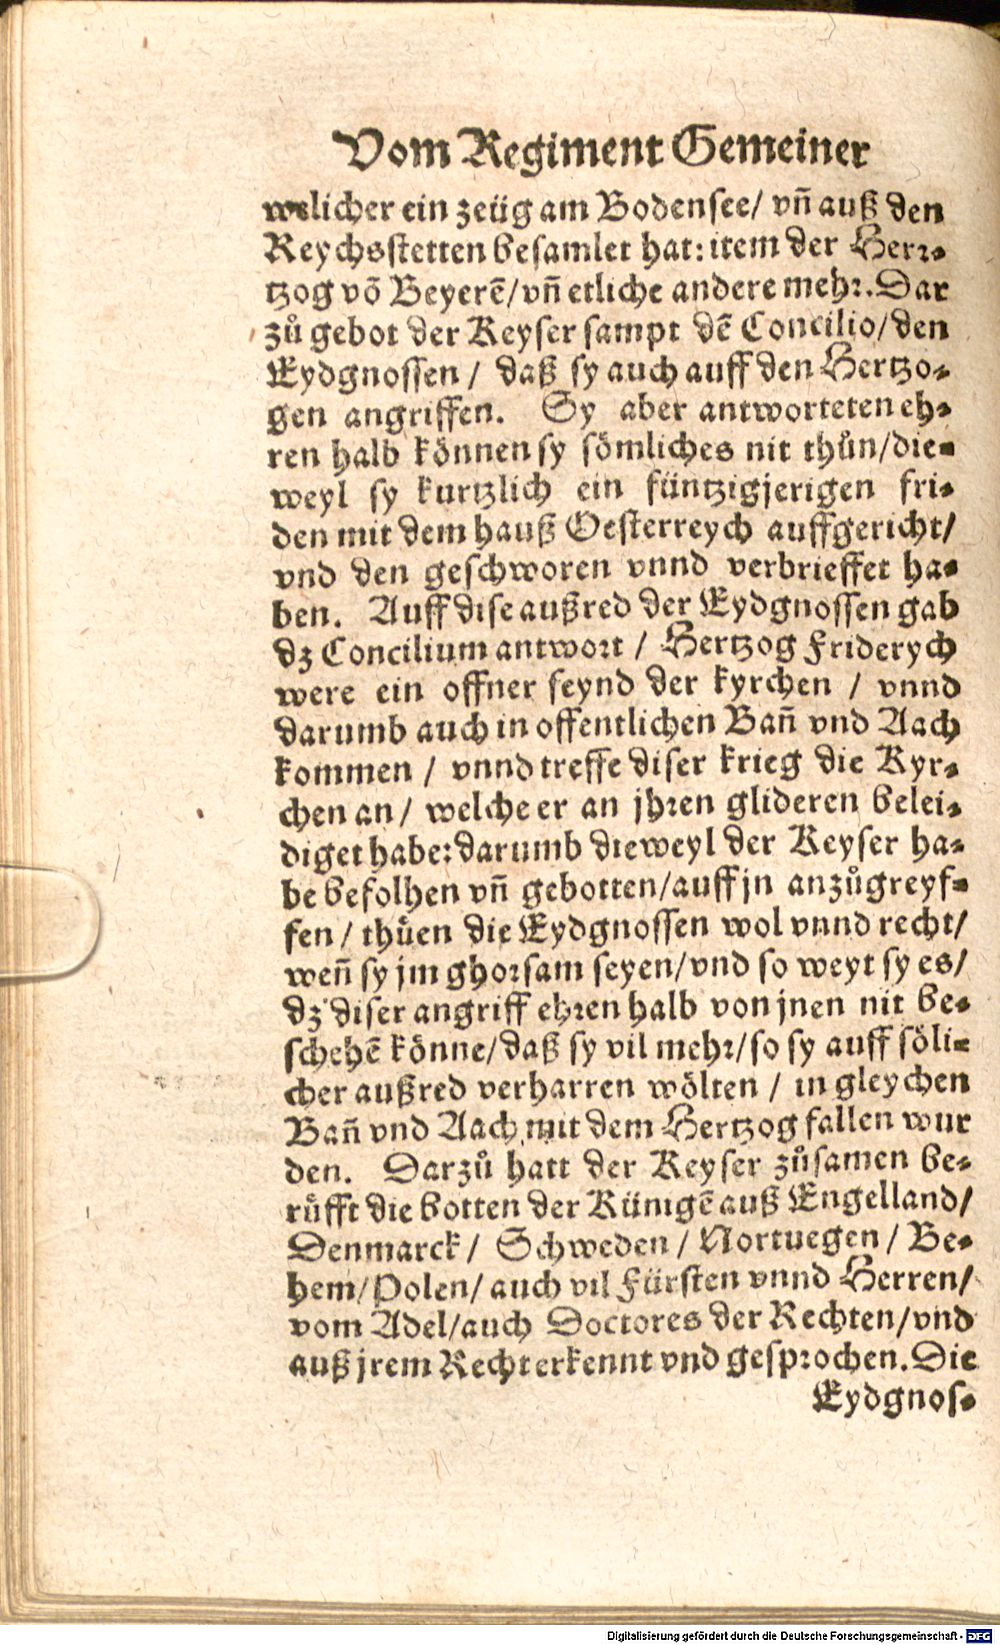 Vom Regiment Gemeiner
welicher ein zeüg am Bodensee/ vñ auß den
Reychsstetten besamlet hat: item der Hertz⸗
tzog võ Beyerẽ/ vñ etliche andere mehr. Dar
zů gebot der Keyser sampt dẽ Concilio/ den
Eydgnossen / daß sy auch auff den Hertzo⸗
gen angriffen. Sy aber antworteten eh⸗
ren halb können sy sömliches nit thůn/ die⸗
weyl sy kurtzlich ein füntzigjerigen fri⸗
den mit dem hauß Oesterreych auffgericht/
vnd den geschworen vnnd verbrieffet ha⸗
ben. Auff dise außred der Eydgnossen gab
dz Concilium antwort / Hertzog Friderych
were ein offner feynd der kyrchen / vnnd
darumb auch in offentlichen Bañ vnd Aach
kommen / vnnd treffe diser krieg die Kyr⸗
chen an / welche er an jhren glideren belei⸗
diget habe: darumb dieweyl der Keyser ha⸗
be befolhen vñ gebotten/ auff jn anzůgreyf⸗
fen / thůen die Eydgnossen wol vnnd recht/
weñ sy jm ghorsam seyen/ vnd so weyt sy es/
dz diser angriff ehren halb von jnen nit be⸗
schehẽ könne/ daß sy vil mehr/ so sy auff söli⸗
cher außred verharren wölten / in gleychen
Bañ vnd Aach mit dem Hertzog fallen wur
den. Darzů hatt der Keyser zůsamen be⸗
růfft die botten der Künigẽ auß Engelland/
Denmarck / Schweden / Nortuegen / Be⸗
hem/ Polen/ auch vil Fürsten vnnd Herren/
vom Adel/ auch Doctores der Rechten/ vnd
auß jrem Recht erkennt vnd gesprochen. Die
Eydgnos⸗
Digitalisierung gefördert durch die Deutsche Forschungsgemeinschaft - DFG